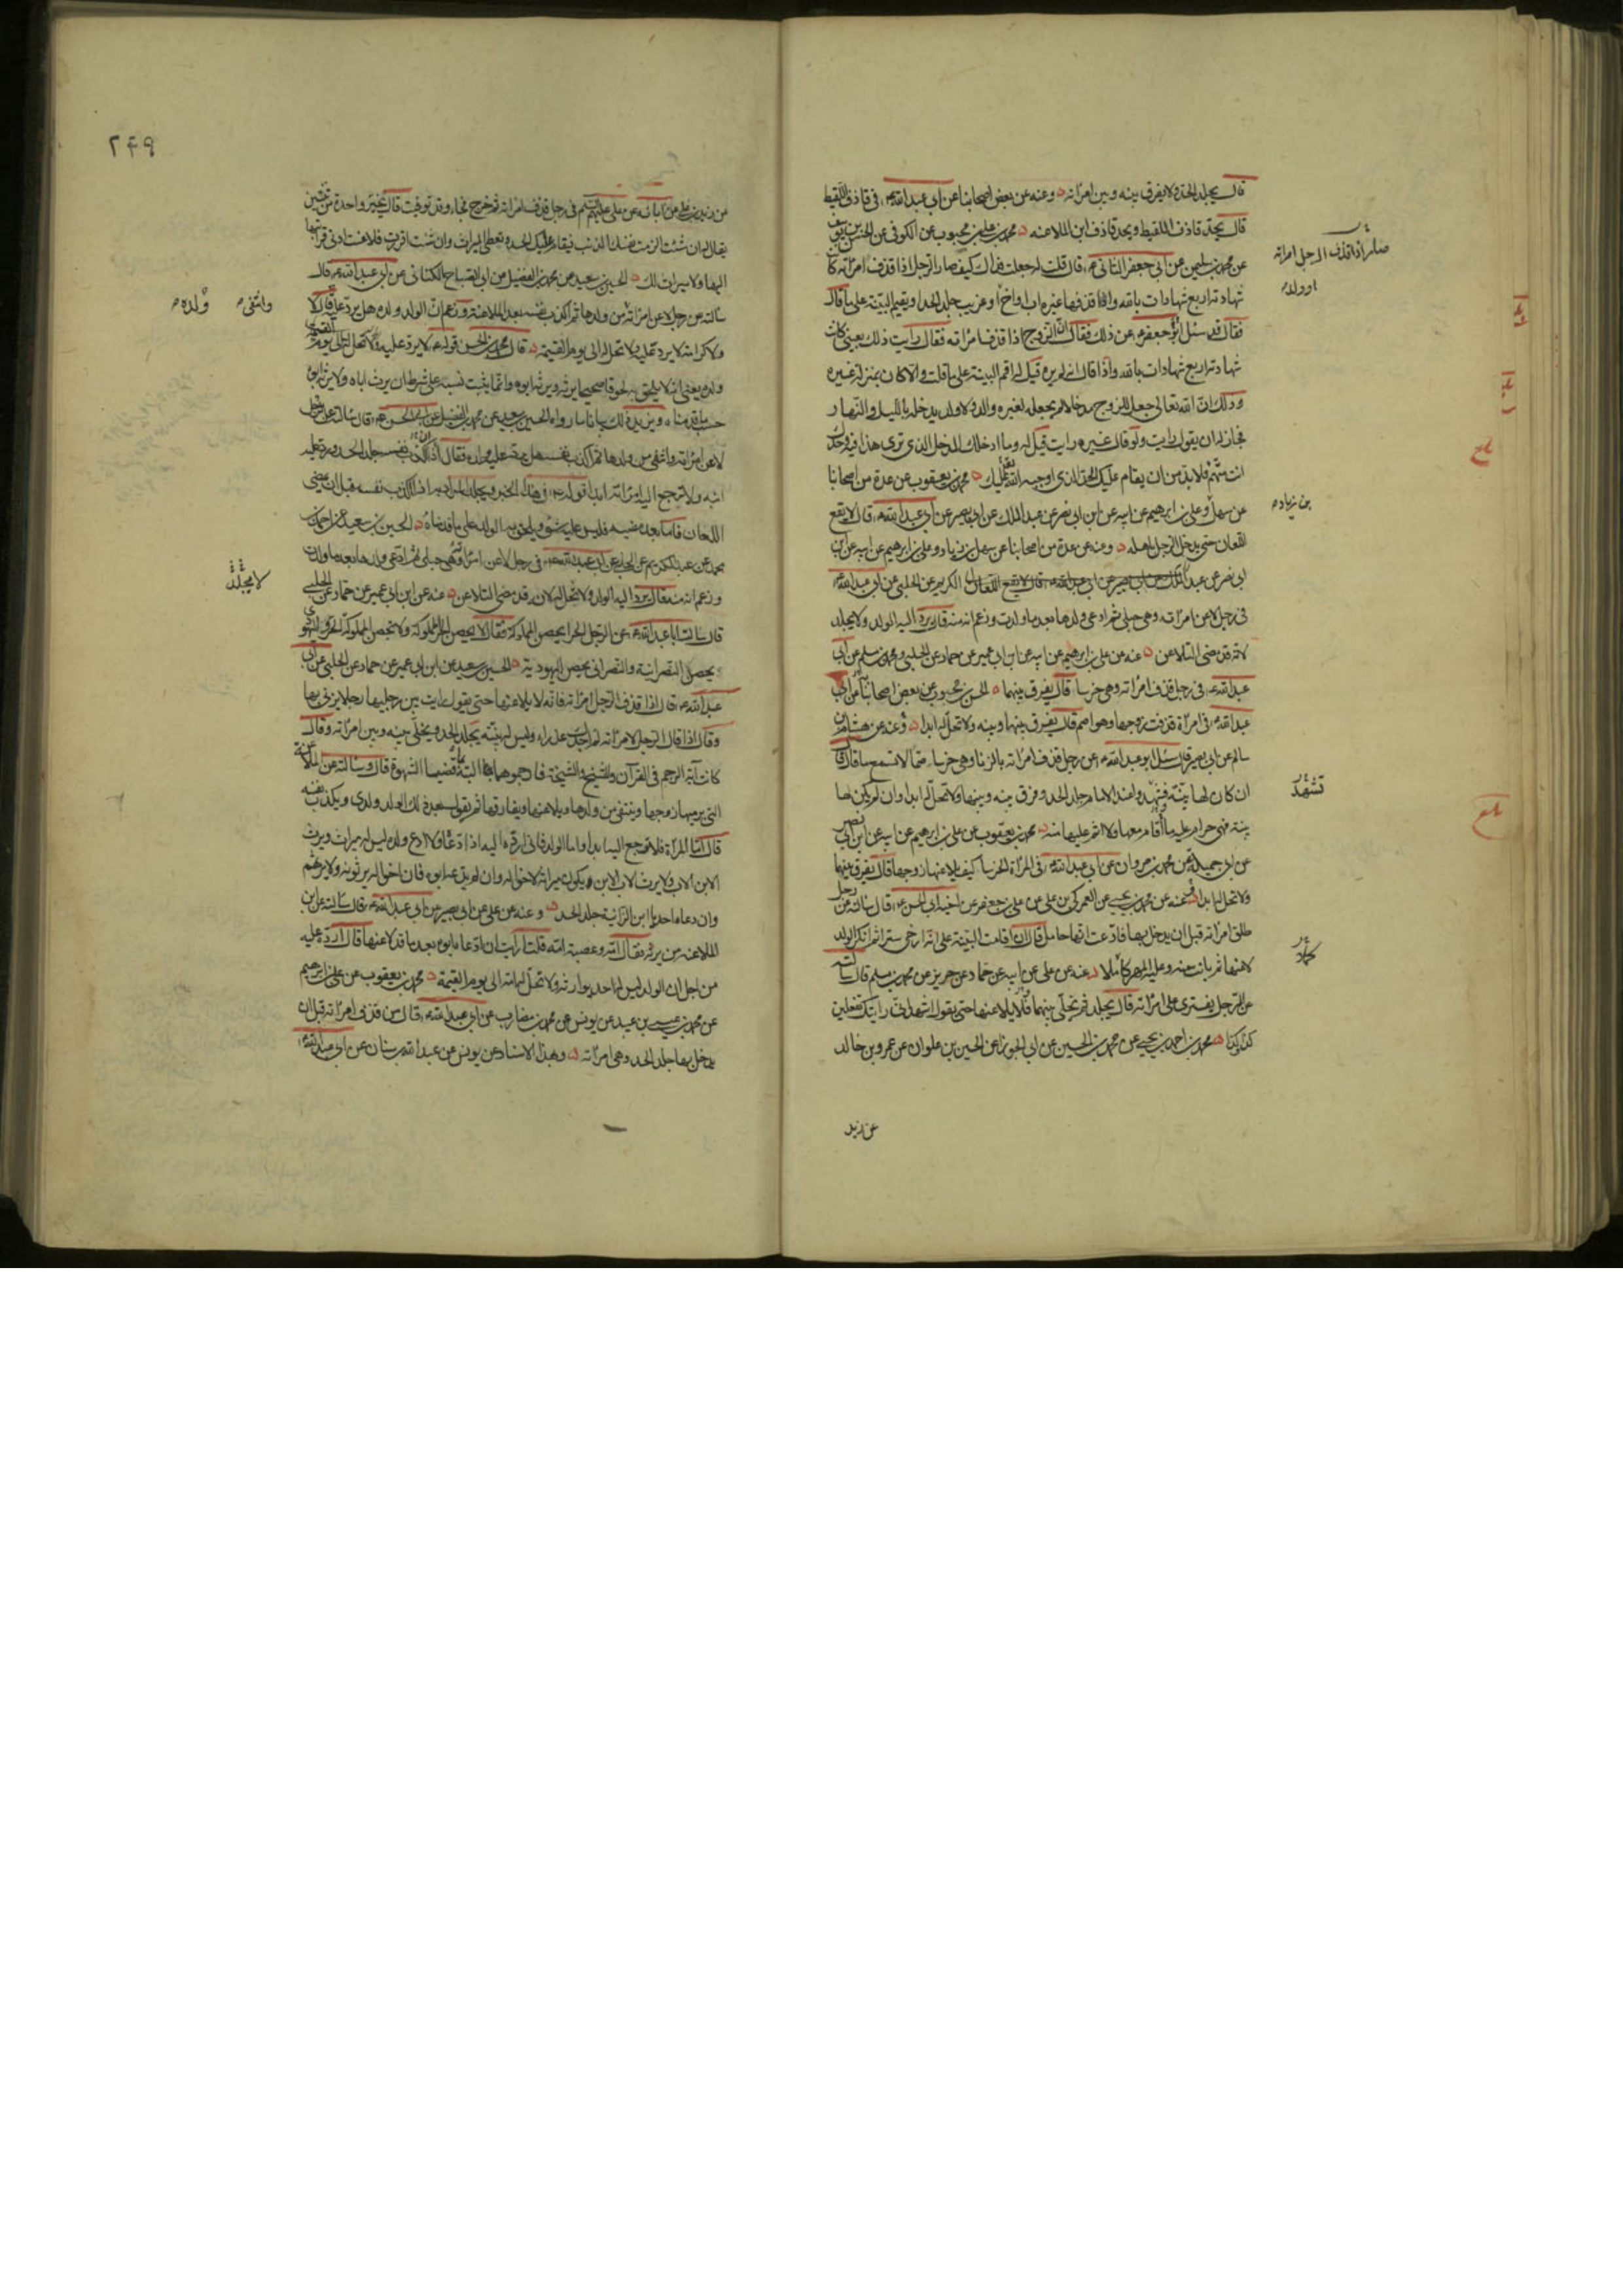 قال يجلد الحد ولا يفرق بينه وبين امرأته ٥ وعنه عن بعض اصحابنا عن ابي عبد الله ع في قاذف اللقيط
قال يحد قاذف اللقيط ويحد قاذف ابن الملاعنه ٥ محمد بن علي بن محبوب عن الكوفي عن الحسن بن يوسف
عن محمد بن سليمن عن ابي جعفر الثاني ع قال قلت له جعلت فداك كيف صار الرجل اذا قذف امرأته كا
شهادته اربع شهادات بالله واذا قذفها غيره اب او اخ او غريب جلد الحد او يقيم البينة على ما قال
فقال قد سئل ابو جعفر ع عن ذلك فقال ان الزوج اذا قذف امرأته فقال رايت ذلك بعيني كانت
شهادته اربع شهادات بالله واذا قال انه لم يره قيل له اقم البينة على ما قلت والا كان بمنزلة غيره
وذلك ان الله تعالى جعل للزوج مدخلا لم يجعله لغيره والد ولا ولد يدخله بالليل والنهار
فجاز له ان يقول رايت ولو قال غيره رايت قيل له وما ادخلك المدخل الذي ترى هذا فيه وحدك
انت متهم فلا بد من ان يقام عليك الحد الذي اوجبه الله عليك ٥ محمد بن يعقوب عن عدة من اصحابنا
عن سهل وعلي بن ابرهيم عن ابيه عن ابن ابي نصر عن عبد الملك عن ابي بصير عن ابي عبد الله ع قال لا يقع
اللعان حتى يدخل الرجل باهله ٥ وعنه عن عدة من اصحابنا عن سهل بن زياد وعلي بن ابرهيم عن ابيه عن ابن
ابي نصر عن عبد الكريم عن الحلبي عن ابي عبد الله ع
في رجل لاعن امرأته وهي حبلى ثم ادعى ولدها بعد ما ولدت وزعم انه منه قال يرد اليه الولد ولا يجلد
لانه قد مضى التلاعن ٥ عنه عن علي بن ابرهيم عن ابيه عن ابن ابي عمير عن حماد عن الحلبي ومحمد بن مسلم عن ابي
عبد الله ع في رجل قذف امرأته وهي خرسا قال يفرق بينهما ٥ الحسن بن محبوب عن بعض اصحابنا عن ابي
عبد الله ع في امرأة قذفت زوجها وهو اصم قال يفرق بينها وبينه ولا تحل له ابدا ٥ وعنه عن هشام بن
سالم عن ابي بصير قال سئل ابو عبد الله ع عن رجل قذف امرأته بالزنا وهي خرساء صما لا تسمع ما قال قا
ان كان لها بينة فشهدوا عند الامام جلد الحد وفرق بينه وبينها ولا تحل له ابدا وان لم يكن لها
بينة فهي حرام عليه ما اقام معها ولا اثم عليها منه ٥ محمد بن يعقوب عن علي بن ابرهيم عن ابيه عن ابن ابي نصر
عن ابي جميلة عن محمد بن مروان عن ابي عبد الله ع في المرأة الخرسا كيف يلاعنها زوجها قال يفرق بينهما
ولا تحل له ابدا ٥ عنه عن محمد بن يحيى عن العمركي بن علي عن علي بن جعفر عن اخيه ابي الحسن ع قال سألته عن رجل
طلق امرأته قبل ان يدخل بها فادعت انها حامل قال ان اقامت البينة على انه ارخى سترا ثم انكر الولد
لاعنها ثم بانت منه وعليه المهر كاملا ٥ عنه عن علي عن ابيه عن حماد عن حريز عن محمد بن مسلم قال سألته
عن الرجل يفتري على امرأته قال يجلد ثم يخلى بينهما فلا يلاعنها حتى يقول اشهد انني رايتك تفعلين
كذا وكذا ٥ محمد بن احمد بن يحيى عن محمد بن الحسين عن ابي الجوزا عن الحسين بن علوان عن عمرو بن خالد
عن زيد
صار اذا قذف الرجل امرأته
او ولده
بن زياد
تشهد
٢٤٩
عن زيد بن علي عن ابائه عن علي عليهم السلم في رجل قذف امرأته ثم خرج فجاء وقد توفيت قال يخير واحدة من ثنتين
يقال له ان شئت الزمت نفسك الذنب فيقام عليك الحد وتعطى الميراث وان شئت اقررت فلاعنت ادنى قرابتها
اليها ولا ميراث لك ٥ الحسين بن سعيد عن محمد بن الفضيل عن ابي الصباح الكناني عن ابي عبد الله ع قال
سألته عن رجل لاعن امرأته من ولدها ثم اكذب نفسه بعد الملاعنة وزعم ان الولد ولده هل يرد عليه قال لا
ولا كرامة لا يرد عليه ولا تحل له الى يوم القيمة ٥ قال محمد بن الحسن قوله ع لا يرد عليه ولا تحل له الى يوم القيمة
ولده يعني انه لا يلحق به لحوقا صحيحا يرثه ويرثه ابوه وانما يثبت نسبه على شرط ان يرث اباه ولا يرثه ابوه
حسب ما قدمناه ويزيد ذلك بيانا ما رواه الحسين بن سعيد عن محمد بن الفضيل عن ابي الحسن ع قال سألته عن رجل
لاعن امرأته وانتفى من ولدها ثم اكذب نفسه هل يرد عليه ولده فقال اذا اكذب نفسه جلد الحد ورد عليه
ابنه ولا ترجع اليه امرأته ابدا قوله ع في هذا الخبر ويجلد الحد المراد به اذا اكذب نفسه قبل ان يمضي
اللعان فاما بعد مضيه فليس عليه شئ ويلحق به الولد على ما قدمناه ٥ الحسين بن سعيد عن احمد بن
محمد عن عبد الكريم عن الحلبي عن ابي عبد الله ع في رجل لاعن امرأته وهي حبلى ثم ادعى ولدها بعد ما ولدت
وزعم انه منه قال يرد اليه الولد ولا تحل له لانه قد مضى التلاعن ٥ عنه عن ابن ابي عمير عن حماد عن الحلبي
قال سألت ابا عبد الله ع عن الرجل الحر ايحصن المملوكة فقال لا يحصن الحر المملوكة ولا تحصن المملوكة الحر واليهودي
يحصن النصرانية والنصراني يحصن اليهودية ٥ الحسين بن سعيد عن ابن ابي عمير عن حماد عن الحلبي عن ابي
عبد الله ع قال اذا قذف الرجل امرأته فانه لا يلاعنها حتى يقول رايت بين رجليها رجلا يزني بها
وقال اذا قال الرجل لامرأته لم اجدك عذراء وليس له بينة يجلد الحد ويخلى بينه وبين امرأته وقال
كانت آية الرجم في القرآن والشيخ والشيخة فارجموهما البتة بما قضيا الشهوة قال وسألته عن الملاعنة
التي يرميها زوجها وينتفي من ولدها ويلاعنها ويفارقها ثم يقول بعد ذلك الولد ولدي ويكذب نفسه
قال اما المرأة فلا ترجع اليه ابدا واما الولد فاني ارده اليه اذا ادعاه ولا ادع ولده ليس له ميراث ويرث
الابن الاب ولا يرث الاب الابن ويكون ميراثه لاخواله وان لم يدعه ابوه فان اخواله يرثونه ولا يرثهم
وان دعاه احد يا ابن الزانية جلد الحد ٥ وعنه عن علي عن ابي بصير عن ابي عبد الله ع قال سألته عن ابن
الملاعنة من يرثه فقال امه وعصبة امه قلت ارايت ان ادعاه ابوه بعد ما قد لاعنها قال ارده عليه
من اجل ان الولد ليس له احد يوارثه ولا تحل له امه الى يوم القيمة ٥ محمد بن يعقوب عن علي بن ابرهيم
عن محمد بن عيسى بن عبيد عن يونس عن محمد بن مضارب عن ابي عبد الله ع قال من قذف امرأته قبل ان
يدخل بها جلد الحد وهي امرأته ٥ وبهذا الاسناد عن يونس عن عبد الله بن سنان عن ابي عبد الله ع
وانتفى ولده
لا يجلد